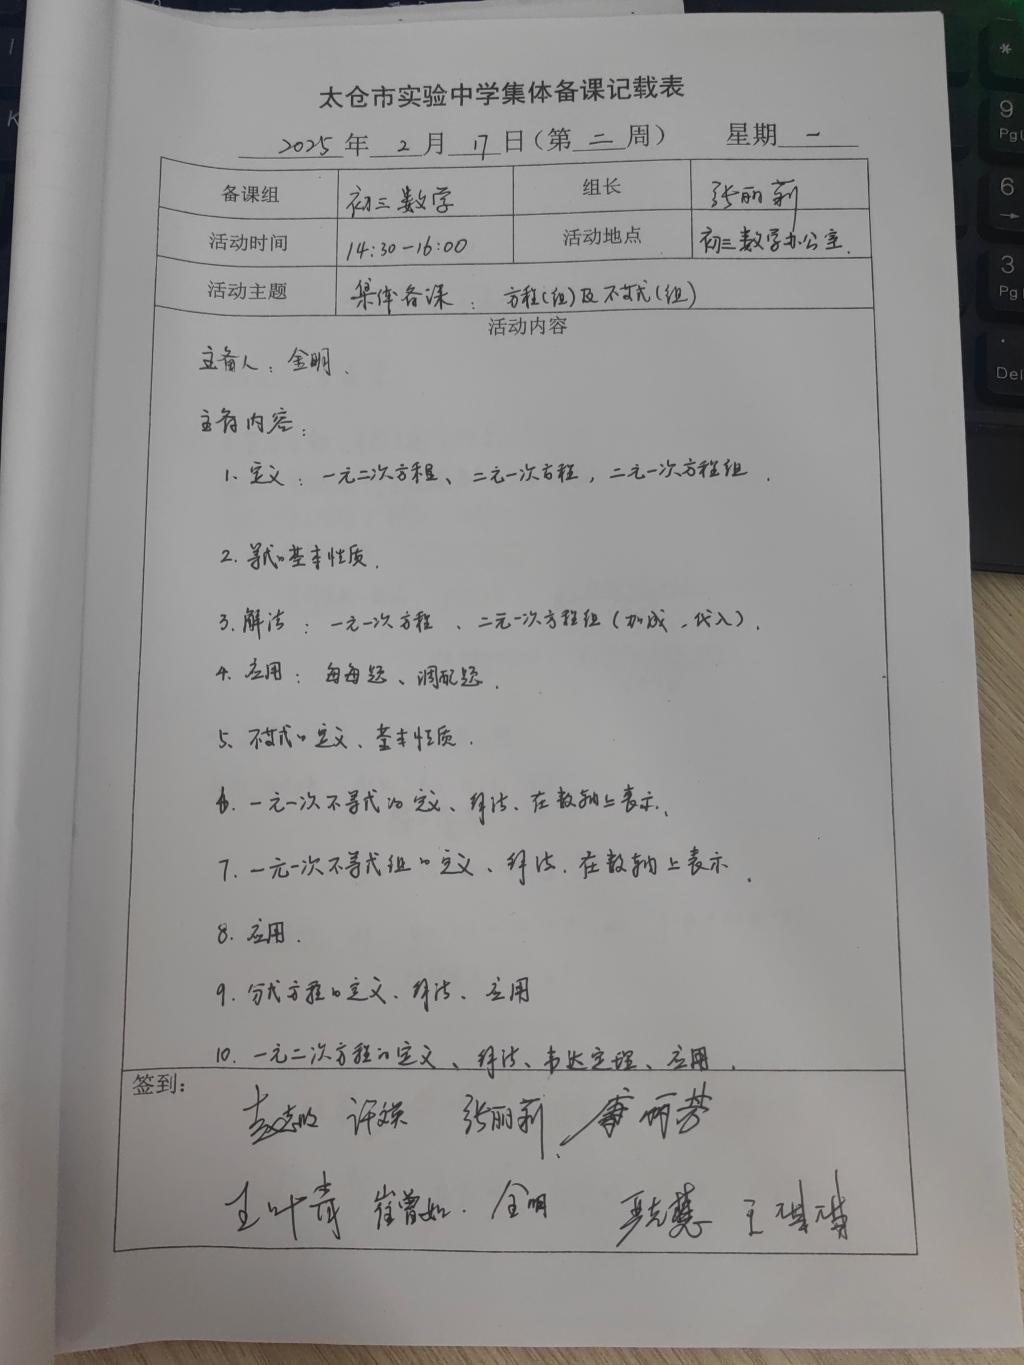 太仓市实验中学集体备课记载表
2025年2月17日(第二周) 星期一
备课组 初三数学 组长 张丽莉
活动时间 14:30-16:00 活动地点 初三数学办公室.
活动主题 集体备课: 方程(组)及不等式(组)
活动内容
主备人: 金明.
主备内容:
1. 定义: 一元二次方程、二元一次方程, 二元一次方程组.
2. 等式的基本性质.
3. 解法: 一元一次方程、二元一次方程组(加减、代入).
4. 应用: 每每题、调配题.
5. 不等式的定义、基本性质.
6. 一元一次不等式的定义、解法、在数轴上表示.
7. 一元一次不等式组的定义、解法、在数轴上表示.
8. 应用.
9. 分式方程的定义、解法、应用
10. 一元二次方程的定义、解法、韦达定理、应用.
签到:
张丽莉
王叶青 崔曾如. 金明
*
9
PgU
6
→
3
Pg
.
Del
K